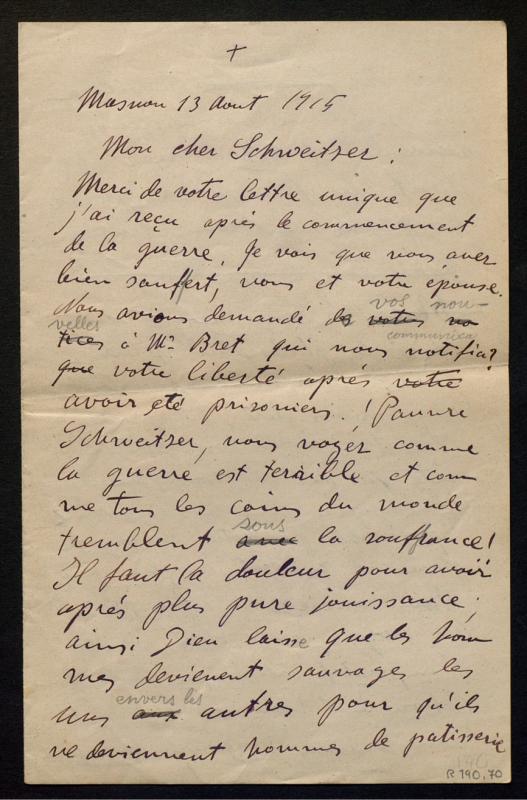 +
Masnou 13 Aout 1915
Mon cher Schweitzer :
Merci de votre lettre unique que
j'ai reçu aprés le commencement
de la guerre. Je vois que vous avez
bien souffert, vous et votre épouse.
Nous avions demandé de votres no
vos nou-
velles
tices à Mr. Bret qui nous notifia
communica
que votre liberté aprés votre
avoir eté prisoniers. ! Pauvre
Schweitzer, vous voyez comme
la guerre est terrible et com
me tous les coins du monde
sous
tremblent avec la souffrance!
Il faut la douleur pour avoir
aprés plus pure jouissance;
ainsi Dieu laisse que les hom
mes devienent sauvages les
envers les
uns aux autres pour qu'ils
ne deviennent hommes de patisserie
R 190.70